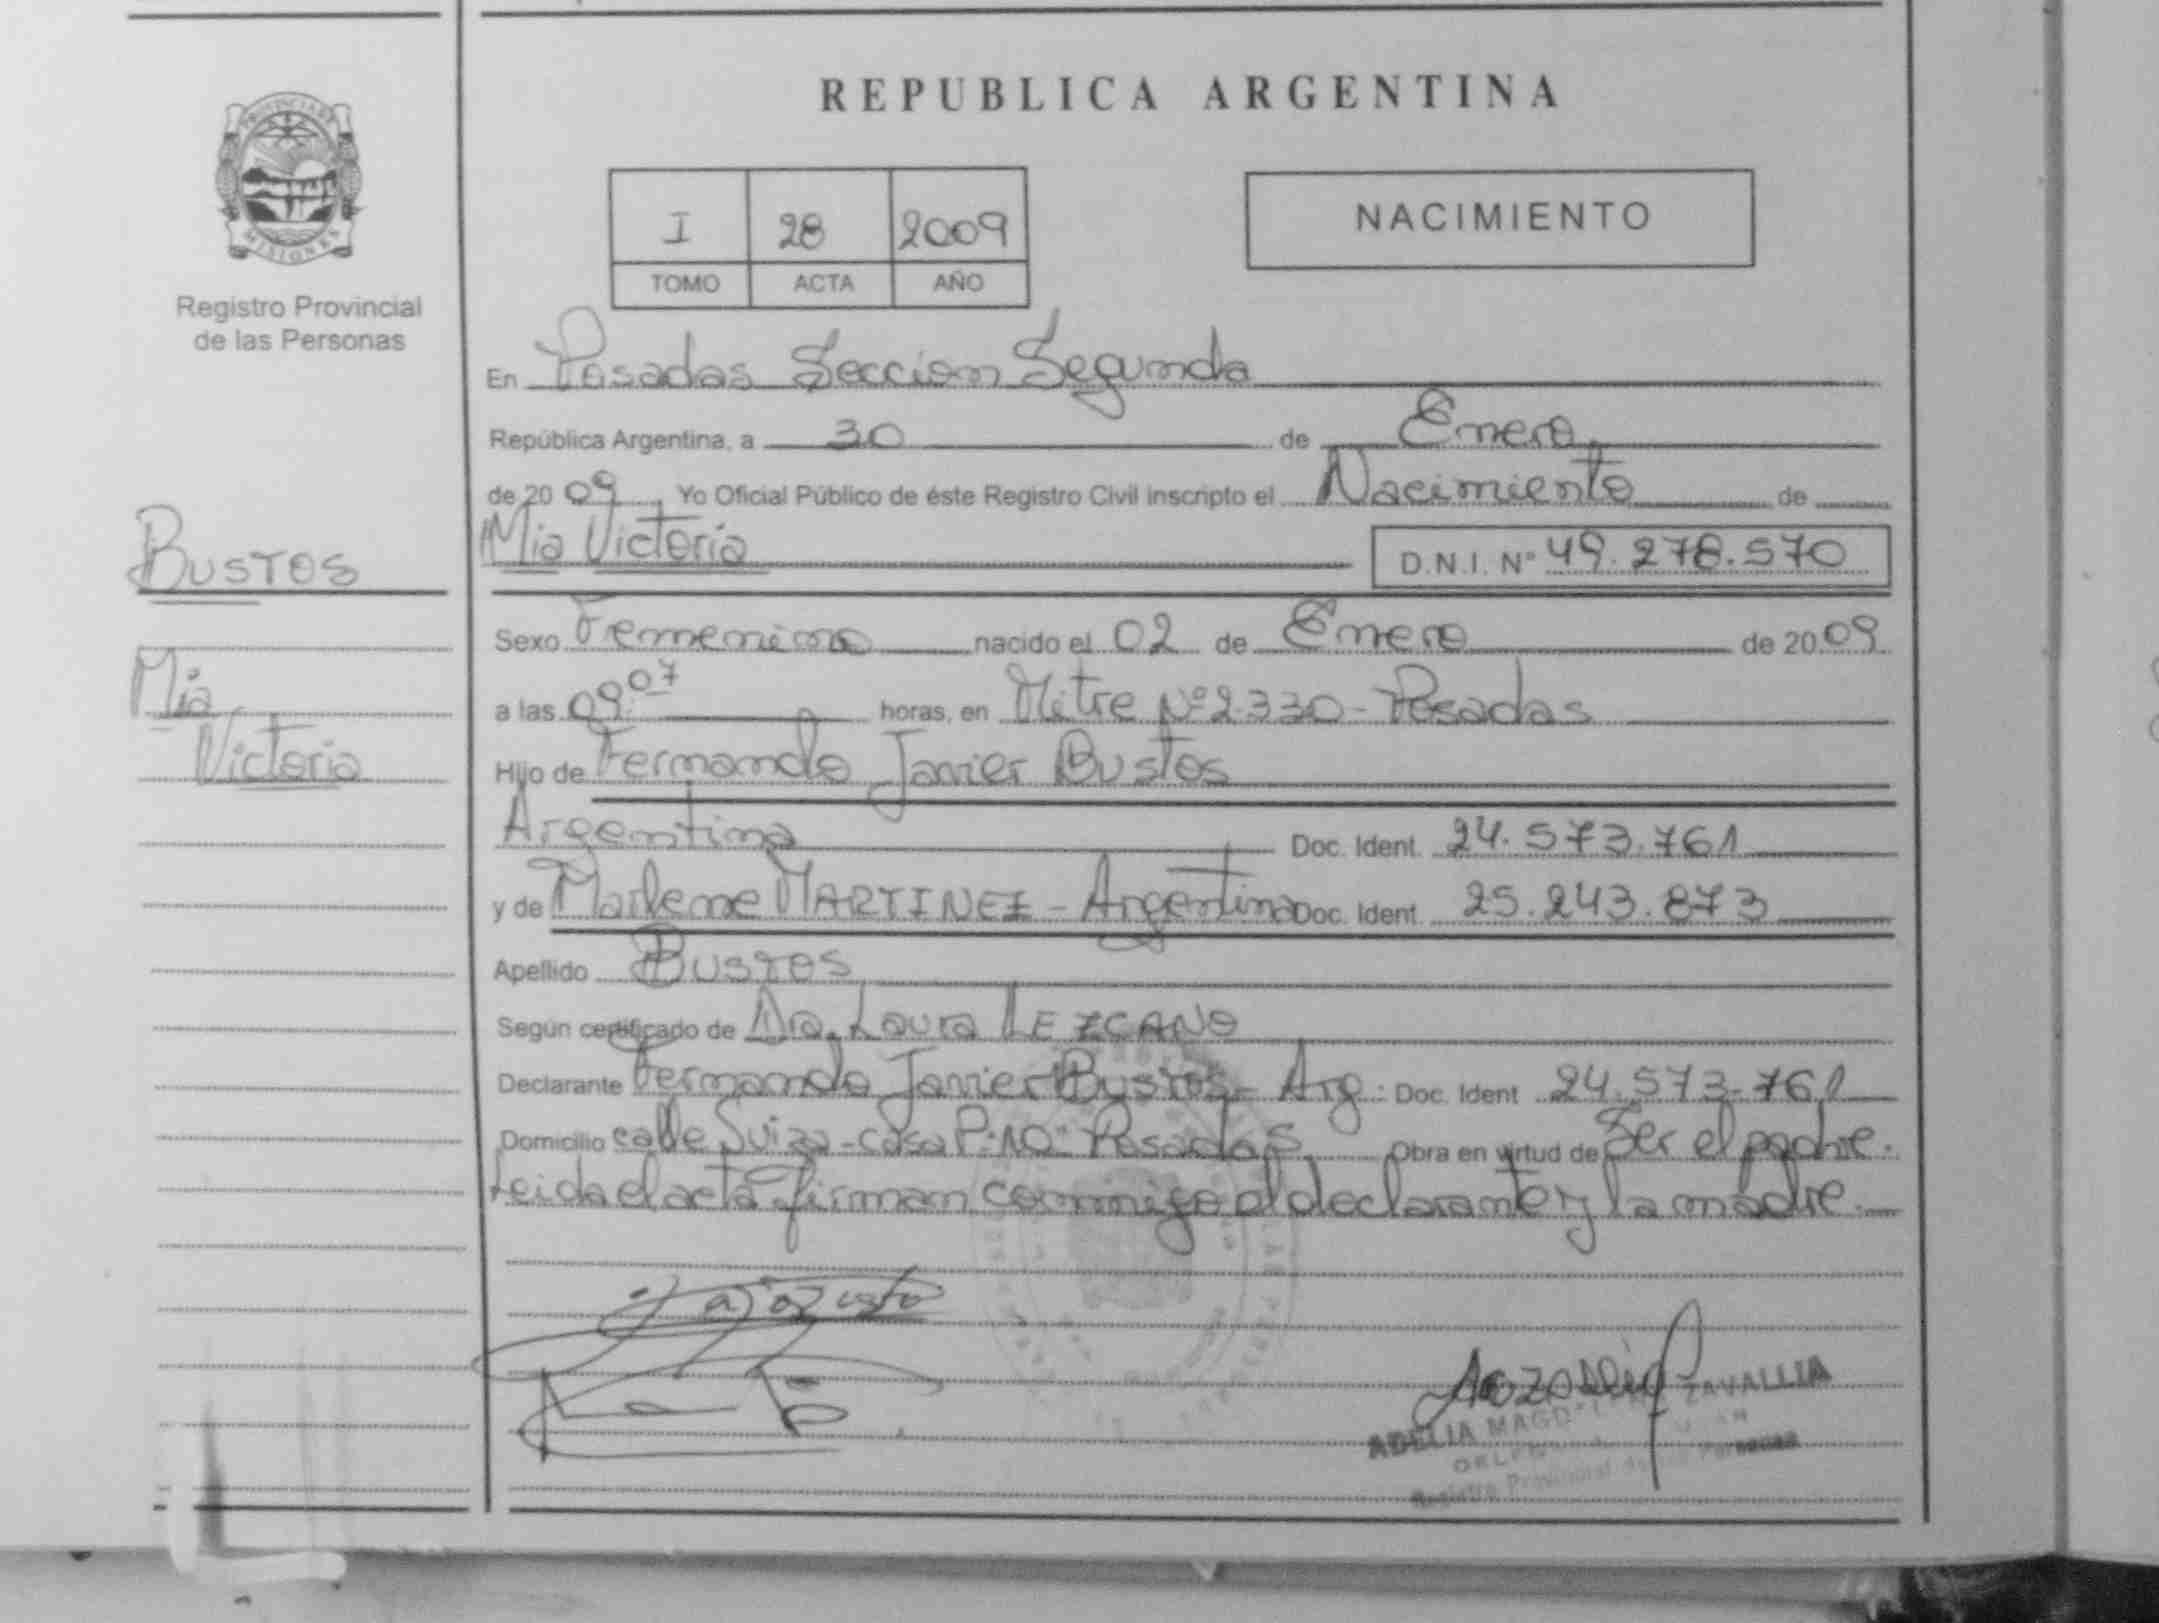 PROVINCIA DE
MISIONES
Registro Provincial
de las Personas
BUSTOS
Mia
Victoria
REPUBLICA ARGENTINA
I 28 2009
TOMO ACTA AÑO
NACIMIENTO
En Posadas Seccion Segunda
República Argentina, a 30 de Enero
de 2009, Yo Oficial Público de éste Registro Civil inscripto el Nacimiento de
Mia Victoria D.N.I. Nº 49.278.570
Sexo Femenino nacido el 02 de Enero de 2009
a las 09:07 horas, en Mitre Nº2.330 - Posadas
Hijo de Fernando Javier Bustos
Argentina Doc. Ident. 24.573.761
y de Marlene MARTINEZ - Argentina Doc. Ident. 25.243.873
Apellido BUSTOS
Según certificado de Dra. Laura LEZCANO
Declarante Fernando Javier Bustos - Arg. Doc. Ident 24.573.761
Domicilio calle Suiza - casa Posadas Obra en virtud de Ser el padre.
Leida el acta firman conmigo el declarante y la madre.
ADELIA ZAVALLIA
Registro Provincial de las Personas